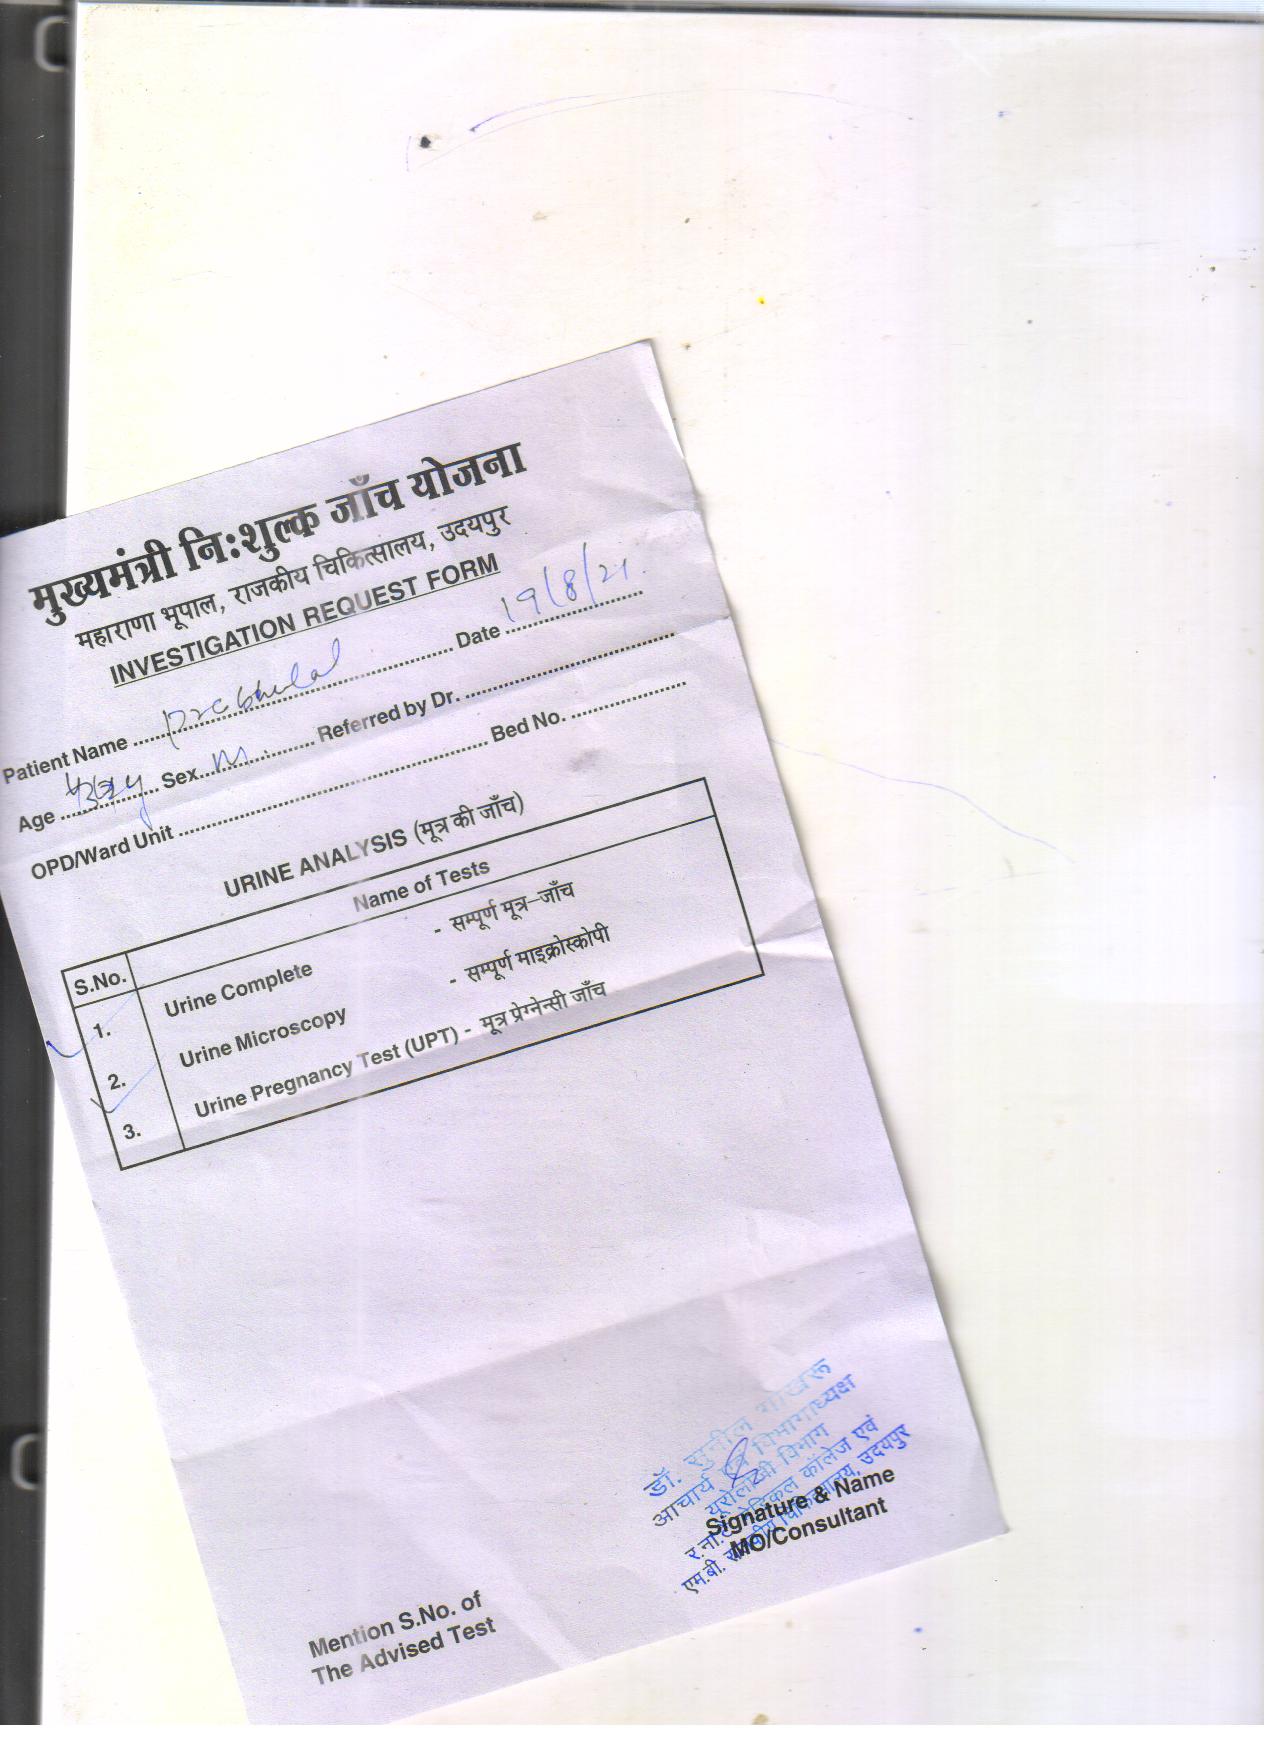 मुख्यमंत्री नि:शुल्क जाँच योजना
महाराणा भूपाल, राजकीय चिकित्सालय, उदयपुर
INVESTIGATION REQUEST FORM
Patient Name Prabhulal Date 19/8/21
Age Sex M Referred by Dr.
OPD/Ward Unit Bed No.
URINE ANALYSIS (मूत्र की जाँच)
S.No. Name of Tests
1. Urine Complete - सम्पूर्ण मूत्र-जाँच
2. Urine Microscopy - सम्पूर्ण माइक्रोस्कोपी
3. Urine Pregnancy Test (UPT) - मूत्र प्रेग्नेन्सी जाँच
डॉ. सुनील गोखरू
आचार्य एवं विभागाध्यक्ष
यूरोलॉजी विभाग
मेडिकल कॉलेज एवं
एम.बी. राजकीय चिकित्सालय, उदयपुर
Signature & Name
MO/Consultant
Mention S.No. of
The Advised Test